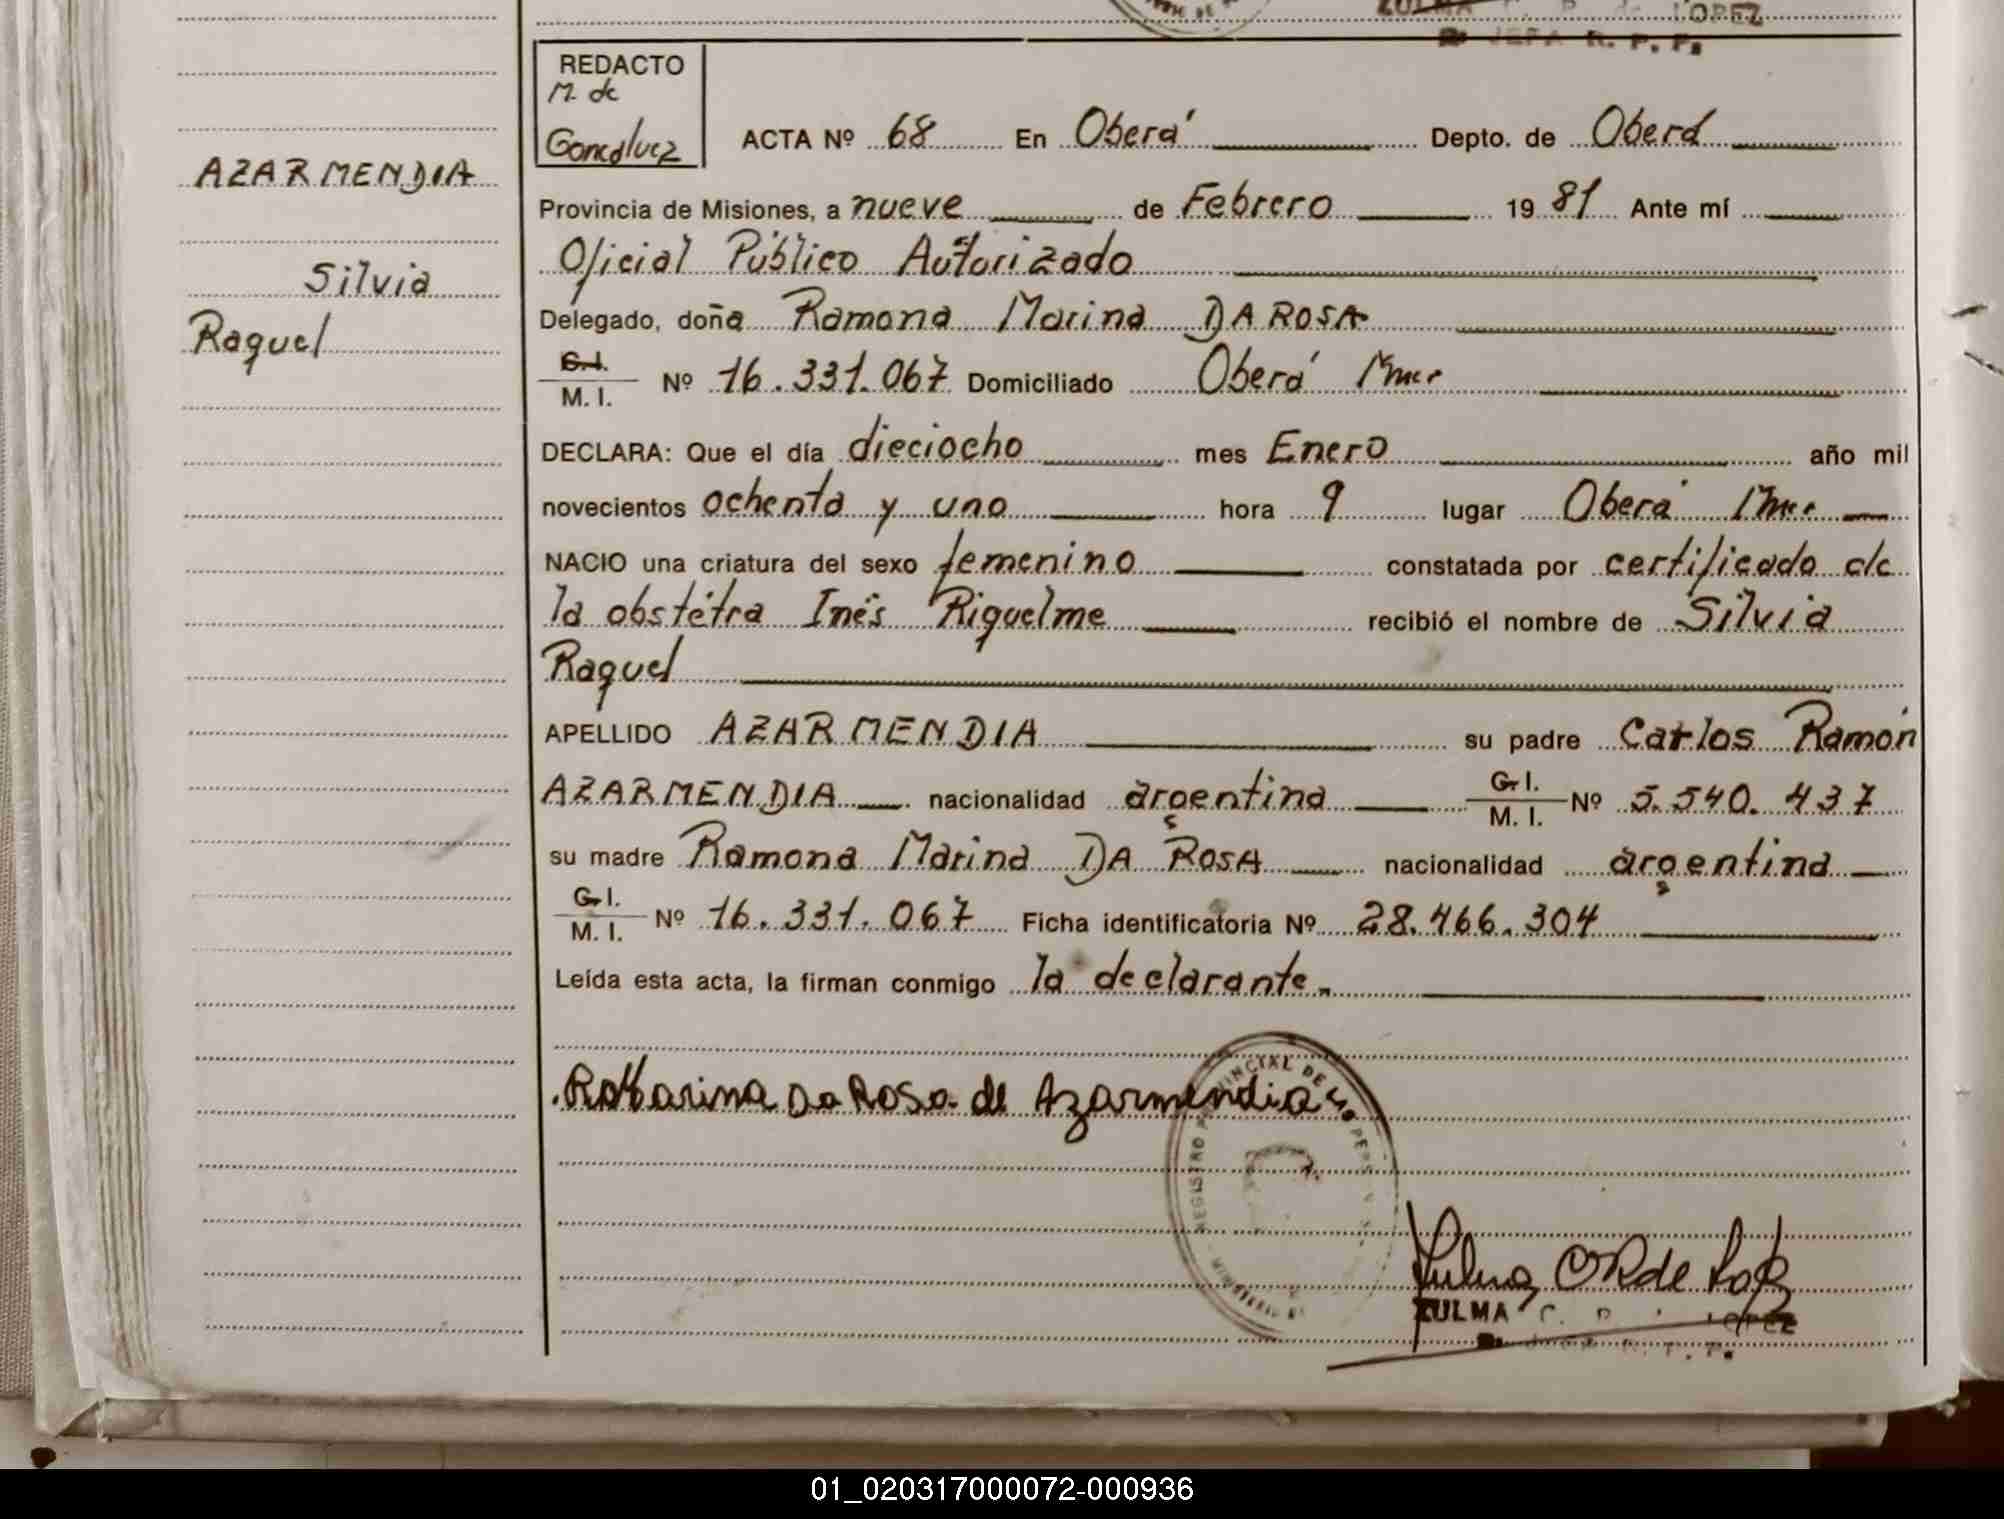 ZULMA LOPEZ
JEFA R. P. P.
REDACTO
M. de
Goncalvez
ACTA Nº 68 En Oberá Depto. de Oberá
AZARMENDIA
Silvia
Raquel
Provincia de Misiones, a nueve de Febrero 19 81 Ante mí
Oficial Público Autorizado
Delegado, doña Ramona Marina DA ROSA
C.I. M. I. Nº 16.331.067 Domiciliado Oberá Mnes
DECLARA: Que el día dieciocho mes Enero año mil
novecientos ochenta y uno hora 9 lugar Oberá Mnes
NACIO una criatura del sexo femenino constatada por certificado de
la obstétra Inés Riquelme recibió el nombre de Silvia
Raquel
APELLIDO AZARMENDIA su padre Carlos Ramón
AZARMENDIA nacionalidad argentina C.I. M. I. Nº 5.540.437
su madre Ramona Marina DA ROSA nacionalidad argentina
C.I. M. I. Nº 16.331.067 Ficha identificatoria Nº 28.466.304
Leída esta acta, la firman conmigo la declarante.
Marina Da Rosa de Azarmendia
REGISTRO PROVINCIAL DE LAS PERS
Zulma de
ZULMA LOPEZ
01_020317000072-000936